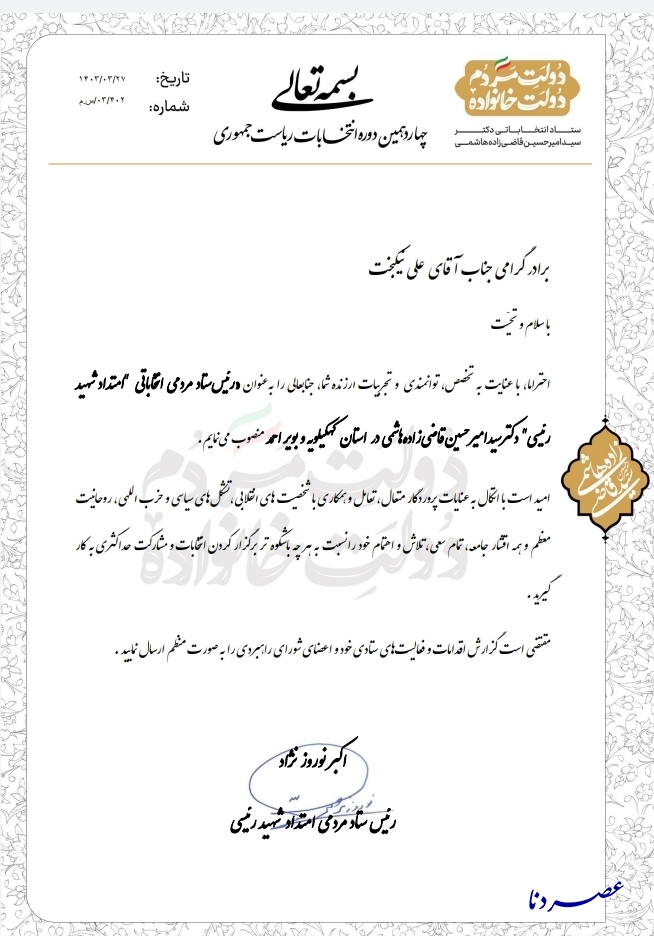 بسمه تعالی
چهاردهمین دوره انتخابات ریاست جمهوری
دولت مردم
دولت خانواده
ستاد انتخاباتی دکتر
سیدامیرحسین قاضی‌زاده‌هاشمی
تاریخ: ۱۴۰۳/۰۳/۲۷
شماره: ۰۳/۴۰۲/س.م
برادر گرامی جناب آقای علی نیکبخت
با سلام و تحیّت
احتراما، با عنایت به تخصص، توانمندی و تجربیات ارزنده شما، جنابعالی را به عنوان «رئیس ستاد مردمی انتخاباتی "امتداد شهید
رئیسی" دکتر سید امیرحسین قاضی زاده هاشمی در استان کهگیلویه و بویر احمد منصوب می نمایم.
امید است با اتکال به عنایات پروردگار متعال، تعامل و همکاری با شخصیت های انقلابی، تشکل های سیاسی و حزب اللهی، روحانیت
معظم و همه اقشار جامعه، تمام سعی، تلاش و اهتمام خود را نسبت به هر چه باشکوه تر برگزار کردن انتخابات و مشارکت حداکثری به کار
گیرید.
مقتضی است گزارش اقدامات و فعالیت های ستادی خود و اعضای شورای راهبردی را به صورت منظم ارسال نمایید.
اکبر نوروز نژاد
رئیس ستاد مردمی امتداد شهید رئیسی
عصر دنا
دولت مردم
دولت خانواده